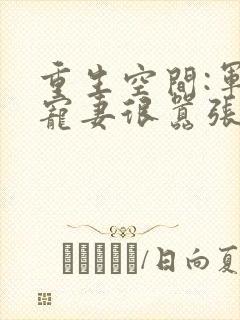 重生空間:軍
寵妻很囂張
/日向夏